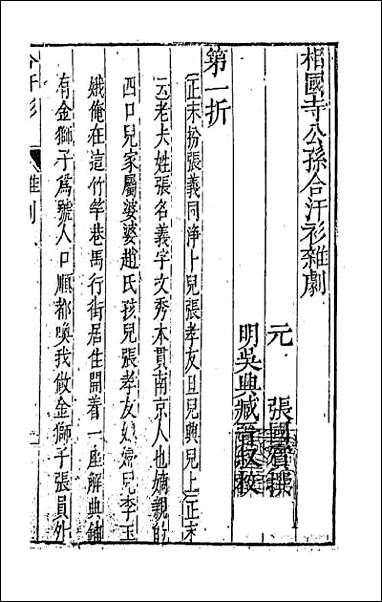 相國寺公孫合汗衫雜劇
元 張國賓撰
明吳興臧晉叔校
第一折
(正末扮張義同淨卜兒張孝友旦兒興兒上)(正末
云)老夫姓張名義字文秀本貫南京人也嫡親的
四口兒家屬婆婆趙氏孩兒張孝友媳婦兒李玉
娥俺在這竹竿巷馬行街居住開着一座解典鋪
有金獅子爲號人口順都喚我做金獅子張員外
合汗衫 雜劇 一